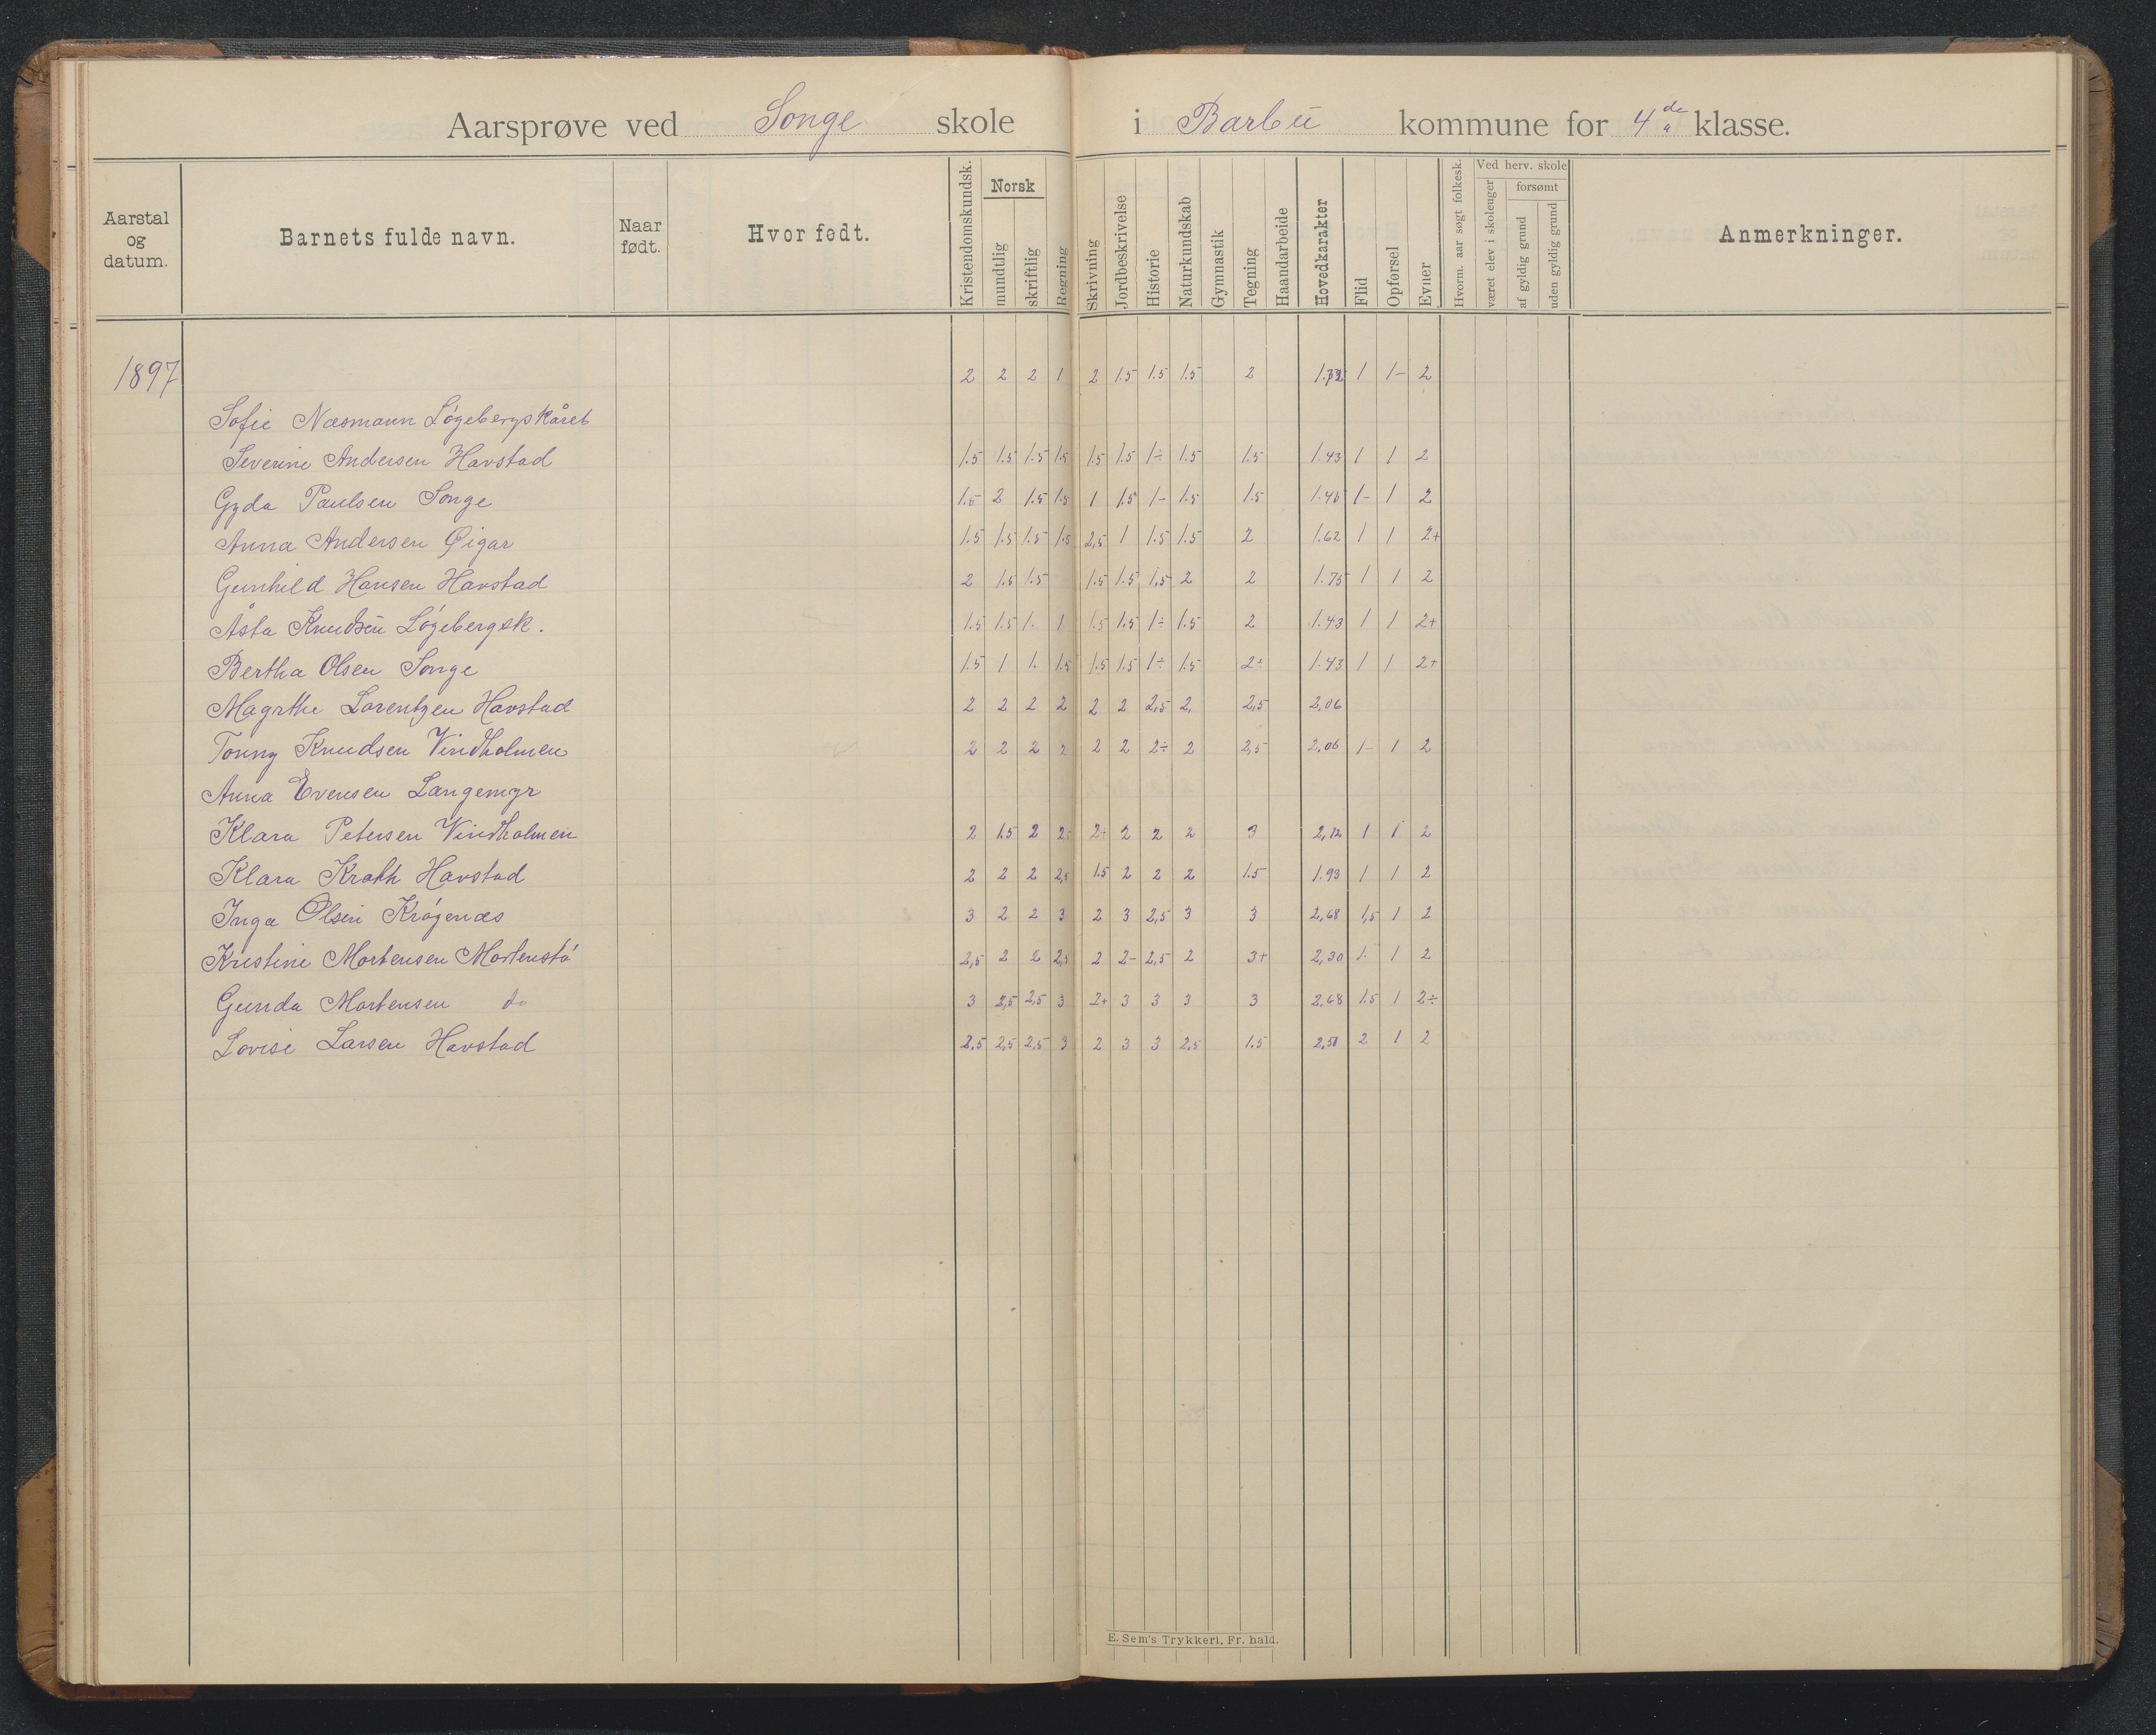 Aarsprøve ved Songe skole i Barbu kommune for 4de a klasse.
Aarstal og datum.
Barnets fulde navn.
Naar født.
Hvor født.
Kristendomskundsk.
Norsk
mundtlig
skriftlig
Regning
Skrivning
Jordbeskrivelse
Historie
Naturkundskab
Gymnastik
Tegning
Haandarbeide
Hovedkarakter
Flid
Opførsel
Evner
Hvorm. aar søgt folkesk.
Ved herv. skole
været elev i skoleuger
forsømt
af gyldig grund
uden gyldig grund
Anmerkninger.
1897 2 2 2 1 2 1.5 1.5 1.5 2 1 1- 2
Sofie Næsmann Løgebergskåret
Severine Andersen Havstad 1.5 1.5 1.5 1.5 1.5 1.5 1÷ 1.5 1.5 1.43 1 1 2
Gyda Paulsen Songe 1.5 2 1.5 1.5 1 1.5 1- 1.5 1.5 1- 1 2
Anna Andersen Øigar 1.5 1.5 1.5 1.5 2,5 1 1.5 1.5 2 1.62 1 1 2+
Gunhild Hansen Havstad 2 1.5 1.5 1.5 1.5 1.5 2 2 1.75 1 1 2
Åsta Knudsen Løgebergsk. 1.5 1.5 1. 1 1.5 1.5 1÷ 1.5 2 1.43 1 1 2+
Bertha Olsen Songe 1.5 1 1. 1.5 1.5 1.5 1÷ 1.5 2÷ 1.43 1 1 2+
Magrthe Lorentzen Havstad 2 2 2 2 2 2 2,5 2, 2,5 2,06
Tonny Knudsen Vindholmen 2 2 2 2 2 2 2÷ 2 2,5 2,06 1- 1 2
Anna Evensen Langemyr
Klara Petersen Vindholmen 2 1.5 2 2 2+ 2 2 2 3 2,12 1 1 2
Klara Krohh Havstad 2 2 2 2,5 1.5 2 2 2 1.5 1.93 1 1 2
Inga Olsen Krøgenæs 3 2 2 3 2 3 2,5 3 3 2,68 1,5 1 2
Kristine Mortensen Mortenstø 2,5 2 2 2,5 2 2- 2,5 2 3+ 2,30 1. 1 2
Gunda Mortensen do 3 2,5 2,5 3 2+ 3 3 3 3 2.68 1.5 1 2÷
Lovise Larsen Havstad 2.5 2,5 2,5 3 2 3 3 2.5 1.5 2 1 2
E. Sem's Trykkeri, Fr. hald.